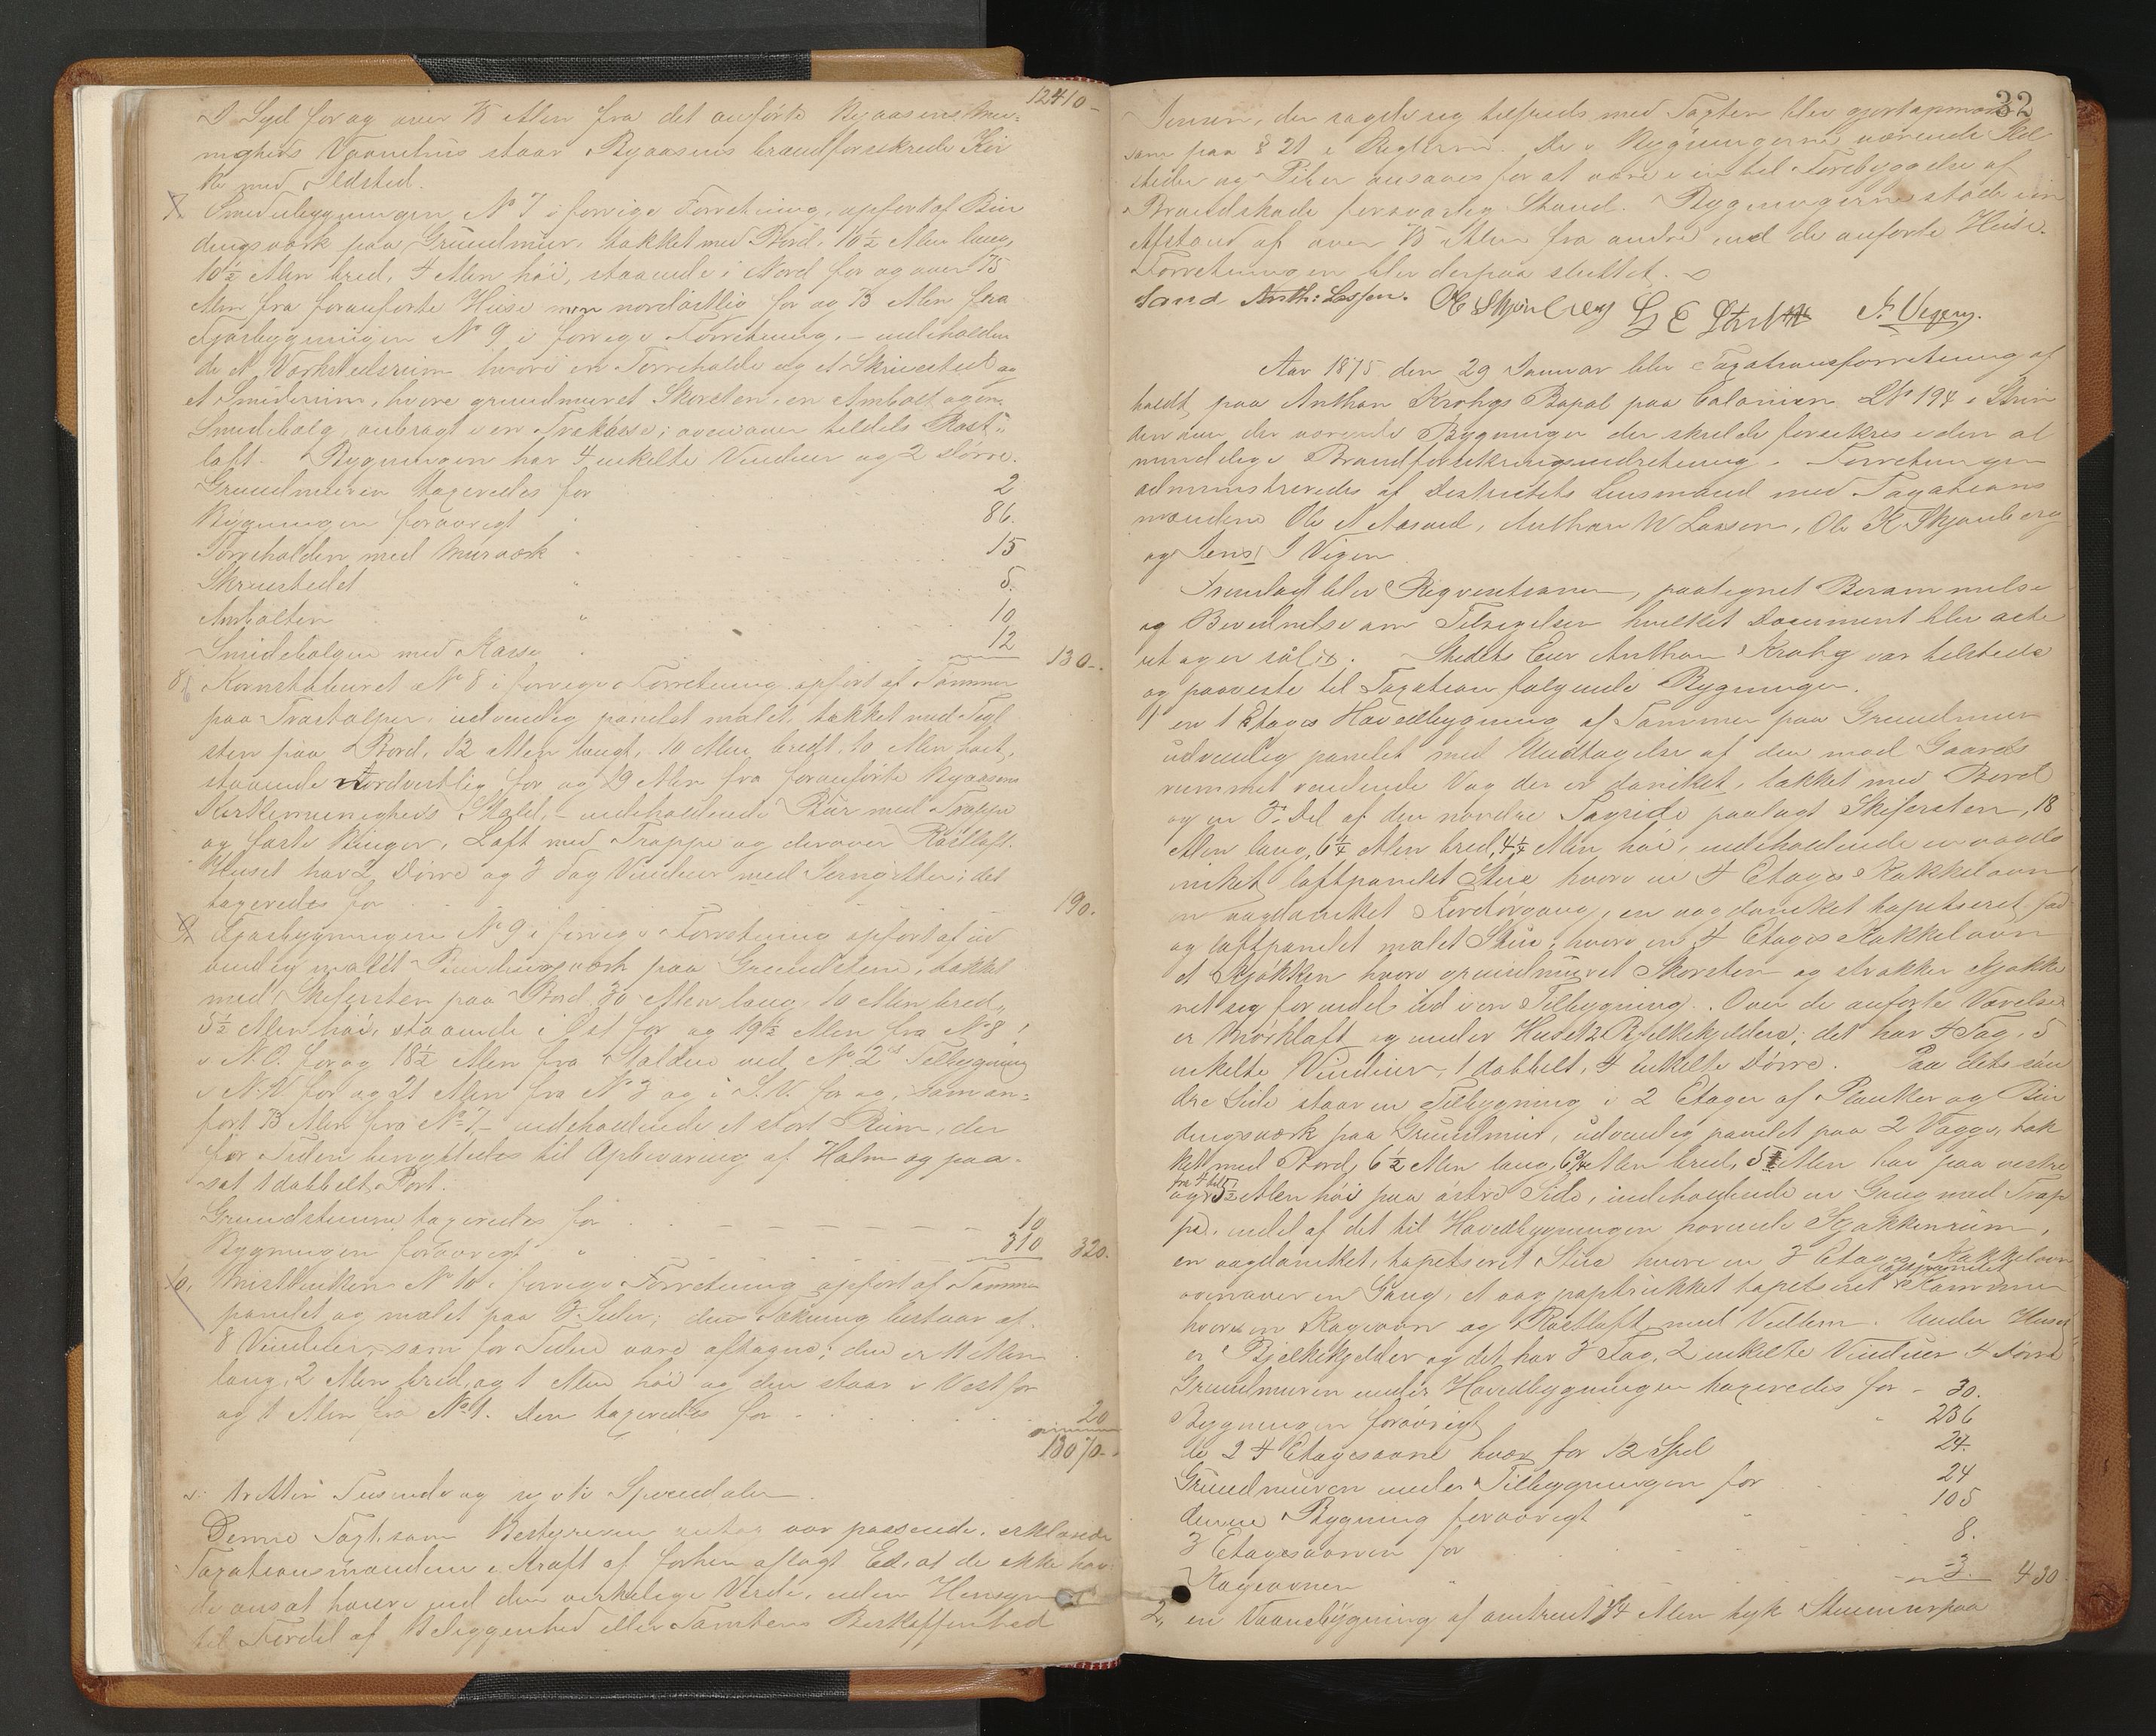 12410-
I Syd for og over 75 Alen fra det anførte Byaasens Me-
nigheds Vaanehus staar Byaasens brandforsikrede Kir
ke med Ildsted.
7, Smedebygningen No 7 i forrige Forretning, opført af Bin
dingsværk paa Grundmur, takket med Bord, 10½ Alen lang,
10½ Alen bred, 4 Alen høi, staaende i Nord for og over 75
Alen fra foranførte Huse men nordøstlig for og 73 Alen fra
Fjøsbygningen No 9 i forrige Forretning, – indeholden
de et Værkstedsrum hvori en Tørreholde og et Skruested og
et Smiderum, hvori grundmuret Skorsten, en Ambolt og en
Smidebælg anbragt i en Trækasse; ovenover tildels Røst-
loft. Bygningen har 4 enkelte Vinduer og 2 Dørre.
Grundmuren taxeredes for 2
Bygningen forøvrigt " 86.
Tørreholden med Murværk " 15
Skruestedet " 5.
Ambolten " 10
Smidebælgen med Kasse " 12 130-.
8, Kornstaburet No 8 i forrige Forretning opført af Tømmer
paa Træstolper, udvendig panelet malet, takket med Tegl
sten paa Bord, 12 Alen langt, 10 Alen bredt, 10 Alen høit,
staaende Nordvestlig for og 19 Alen fra foranførte Byaasens
Kirkemenigheds Stald, – indeholdende Bur med Trappe
og faste Binger, Loft med Trappe og derover Røstloft.
Huset har 2 Dørre og 3 Fag Vinduer med Jerngitter; det
taxeredes for 190.
9, Fjøsbygningen No 9 i forrige Forretning opført af ud
vendig malet Bindingsværk paa Grundstene, takket
med Skifersten paa Bord 30 Alen lang, 10 Alen bred,
5½ Alen høi, staaende i Øst for og 19½ Alen fra No 8,
i N.O. for og 18½ Alen fra Stalden ved No 2's Tilbygning
i N.V. for og 21 Alen fra No 3 og i S.V. for og, som an-
ført 73 Alen fra No 7, – indeholdende et stort Rum, der
for Tiden benyttedes til Opbevaring af Halm og paa-
sat 1 dobbelt Port.
Grundstenene taxeredes for 10
Bygningen forøvrigt " 310 320.
10, Mistbænken No 10 i forrige Forretning opført af Tømmer
panelet og malet paa 3 Sider; dens Tækning bestaar af
8 Vinduer, som for Tiden vare aftagne; den er 11 Alen
lang, 2 Alen bred, og 1 Alen høi og den staar i Vest for
og 1 Alen fra No 1. Den taxeredes for 20
13070-
Tretten Tusinde og sytti Speciedaler.
Denne Taxt, som Bestyreren antog var passende, erklærede
Taxationsmændene i Kraft af forhen aflagt Ed, at de ikke hav
de ansat høiere end den virkelige Værdi, uden Hensyn
til Fordel af Beliggenhed eller Tomtens Beskaffenhed
32
Jensen, der sagde sig tilfreds med Taxten blev gjort opmærk
som paa § 21 i Reglerne. De i Bygningerne værende Ild
steder og Piber ansaaes for at være i en til Forebyggelse af
Brandskade forsvarlig Stand. Bygningerne stode i en
Afstand af over 75 Alen fra andre end de anførte Huse.
Forretningen blev derpaa sluttet.
Sand Anth: Lassen. Ole Skjønberg J. Vegen.
Aar 1875 den 29 Januar blev Taxationsforretning af
holdt paa Anthon Krohgs Bopæl paa Calonien LNo 194 i Strin
den over der værende Bygninger der skulde forsikres i den al
mindelige Brandforsikringsindretning. Forretningen
administreredes af Districtets Lensmand med Taxations
mændene Ole A Aasved, Anthon W Lassen, Ole K Skjønberg
og Jens J Vegen
Fremlagt blev Reqvisitionen, paategnet Berammelse
og Bevidnelse om Tilsigelsen hvilket Document blev acte
ret og er sål. Stedets Eier Anthon Krohg var tilstede
og paaviste til Taxation følgende Bygninger.
1, en 1 Etages Hovedbygning af Tømmer paa Grundmur
udvendig panelet med Undtagelse af den mod Gaards
rummet vendende Væg der er dansket, takket med Bord
og en 3die Del af den nordre Tagside paalagt Skifersten, 18
Alen lang, 6¼ Alen bred, 4¼ Alen høi, indeholdende en vægda
nsket loftpanelet Stue hvori en 4 Etages Kakkelovn
en vægdansket Fordørgang, en vægdansket tapetseret
og loftpanelet malet Stue, hvori en 4 Etages Kakkelovn
et Kjøkken hvori grundmuret Skorsten og strækker Kjøkke
net sig for endel ud i en Tilbygning. Over de anførte Værelser
er Mørkloft og under Huset 2 Bjelkekjeldere; det har 4 Fag, 5
enkelte Vinduer, 1 dobbelt, 4 enkelte Dørre. Paa dets søn
dre Side staar en Tilbygning i 2 Etager af Planker og Bin
dingsværk paa Grundmur, udvendig panelet paa 2 Vægge, tak
ket med Bord, 6½ Alen lang, 6¾ Alen bred, 5 Alen høi paa vestre
og fra 4 til 5½ Alen høi paa østre Side, indeholdende en Gang med Trap
pe, endel af det til Hovedbygningen hørende Kjøkkenrum,
en vægdansket, tapetseret Stue hvori en 3 Etages Kakkelovn
ovenover en Gang, et væg paptrukket tapetseret loftpanelet Kammer
hvori en Kogeovn og Røstloft med Vedlem. Under Huset
er Bjelkekjelder og det har 3 Fag, 2 enkelte Vinduer 4 Dørre
Grundmuren under Hovedbygningen taxeredes for - 30.
Bygningen forøvrigt " 236
de 2 4 Etagesovne hver for 12 Spd 24.
Grundmuren under Tilbygningen for 24
denne Bygning forøvrigt " 105
3 Etagesovnen for 8.
Kogeovnen " 3. 430
2, en Vaanebygning af omtrent ¾ Alen tyk Stenmur paa